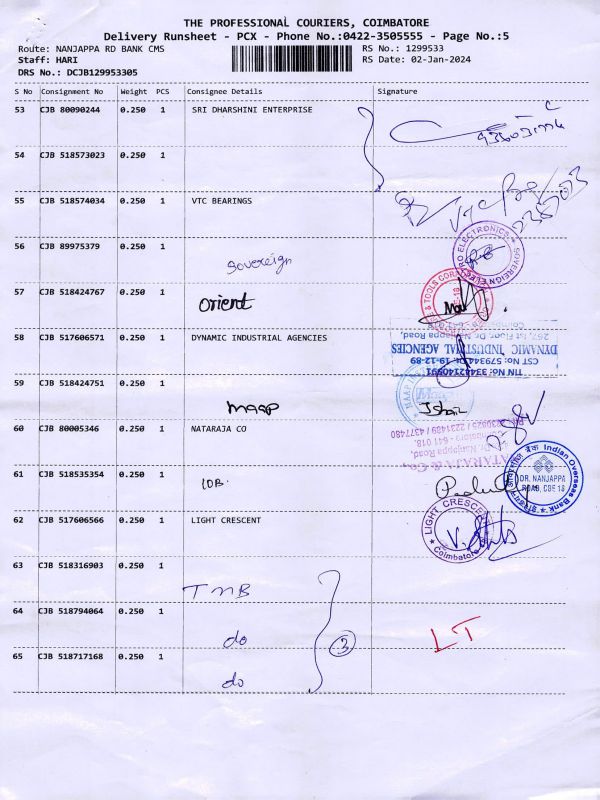 THE PROFESSIONAL COURIERS, COIMBATORE
Delivery Runsheet - PCX - Phone No.:0422-3505555 - Page No.:5
Route: NANJAPPA RD BANK CMS RS No.: 1299533
Staff: HARI RS Date: 02-Jan-2024
DRS No.: DCJB129953305
S No Consignment No Weight PCS Consignee Details Signature
53 CJB 80090244 0.250 1 SRI DHARSHINI ENTERPRISE
54 CJB 518573023 0.250 1
55 CJB 518574034 0.250 1 VTC BEARINGS
56 CJB 89975379 0.250 1
Sovereign
57 CJB 518424767 0.250 1
Orient
58 CJB 517606571 0.250 1 DYNAMIC INDUSTRIAL AGENCIES
TIN No: 33442140591
CST No: 579344 Dt. 19-12-89
DYNAMIC INDUSTRIAL AGENCIES
267, 1st Floor, Dr. Nanjappa Road,
59 CJB 518424751 0.250 1
MAAP
60 CJB 80005346 0.250 1 NATARAJA CO
NATARAJA & Co.,
Dr. Nanjappa Road,
641 018.
2231489 / 4377480
61 CJB 518535354 0.250 1
IOB.
Indian Overseas Bank
इण्डियन ओवरसीज़ बैंक
DR. NANJAPPA
ROAD, CBE-18
62 CJB 517606566 0.250 1 LIGHT CRESCENT
LIGHT CRESCENT
Coimbatore
63 CJB 518316903 0.250 1
TMB
64 CJB 518794064 0.250 1
do
3
LT
65 CJB 518717168 0.250 1
do